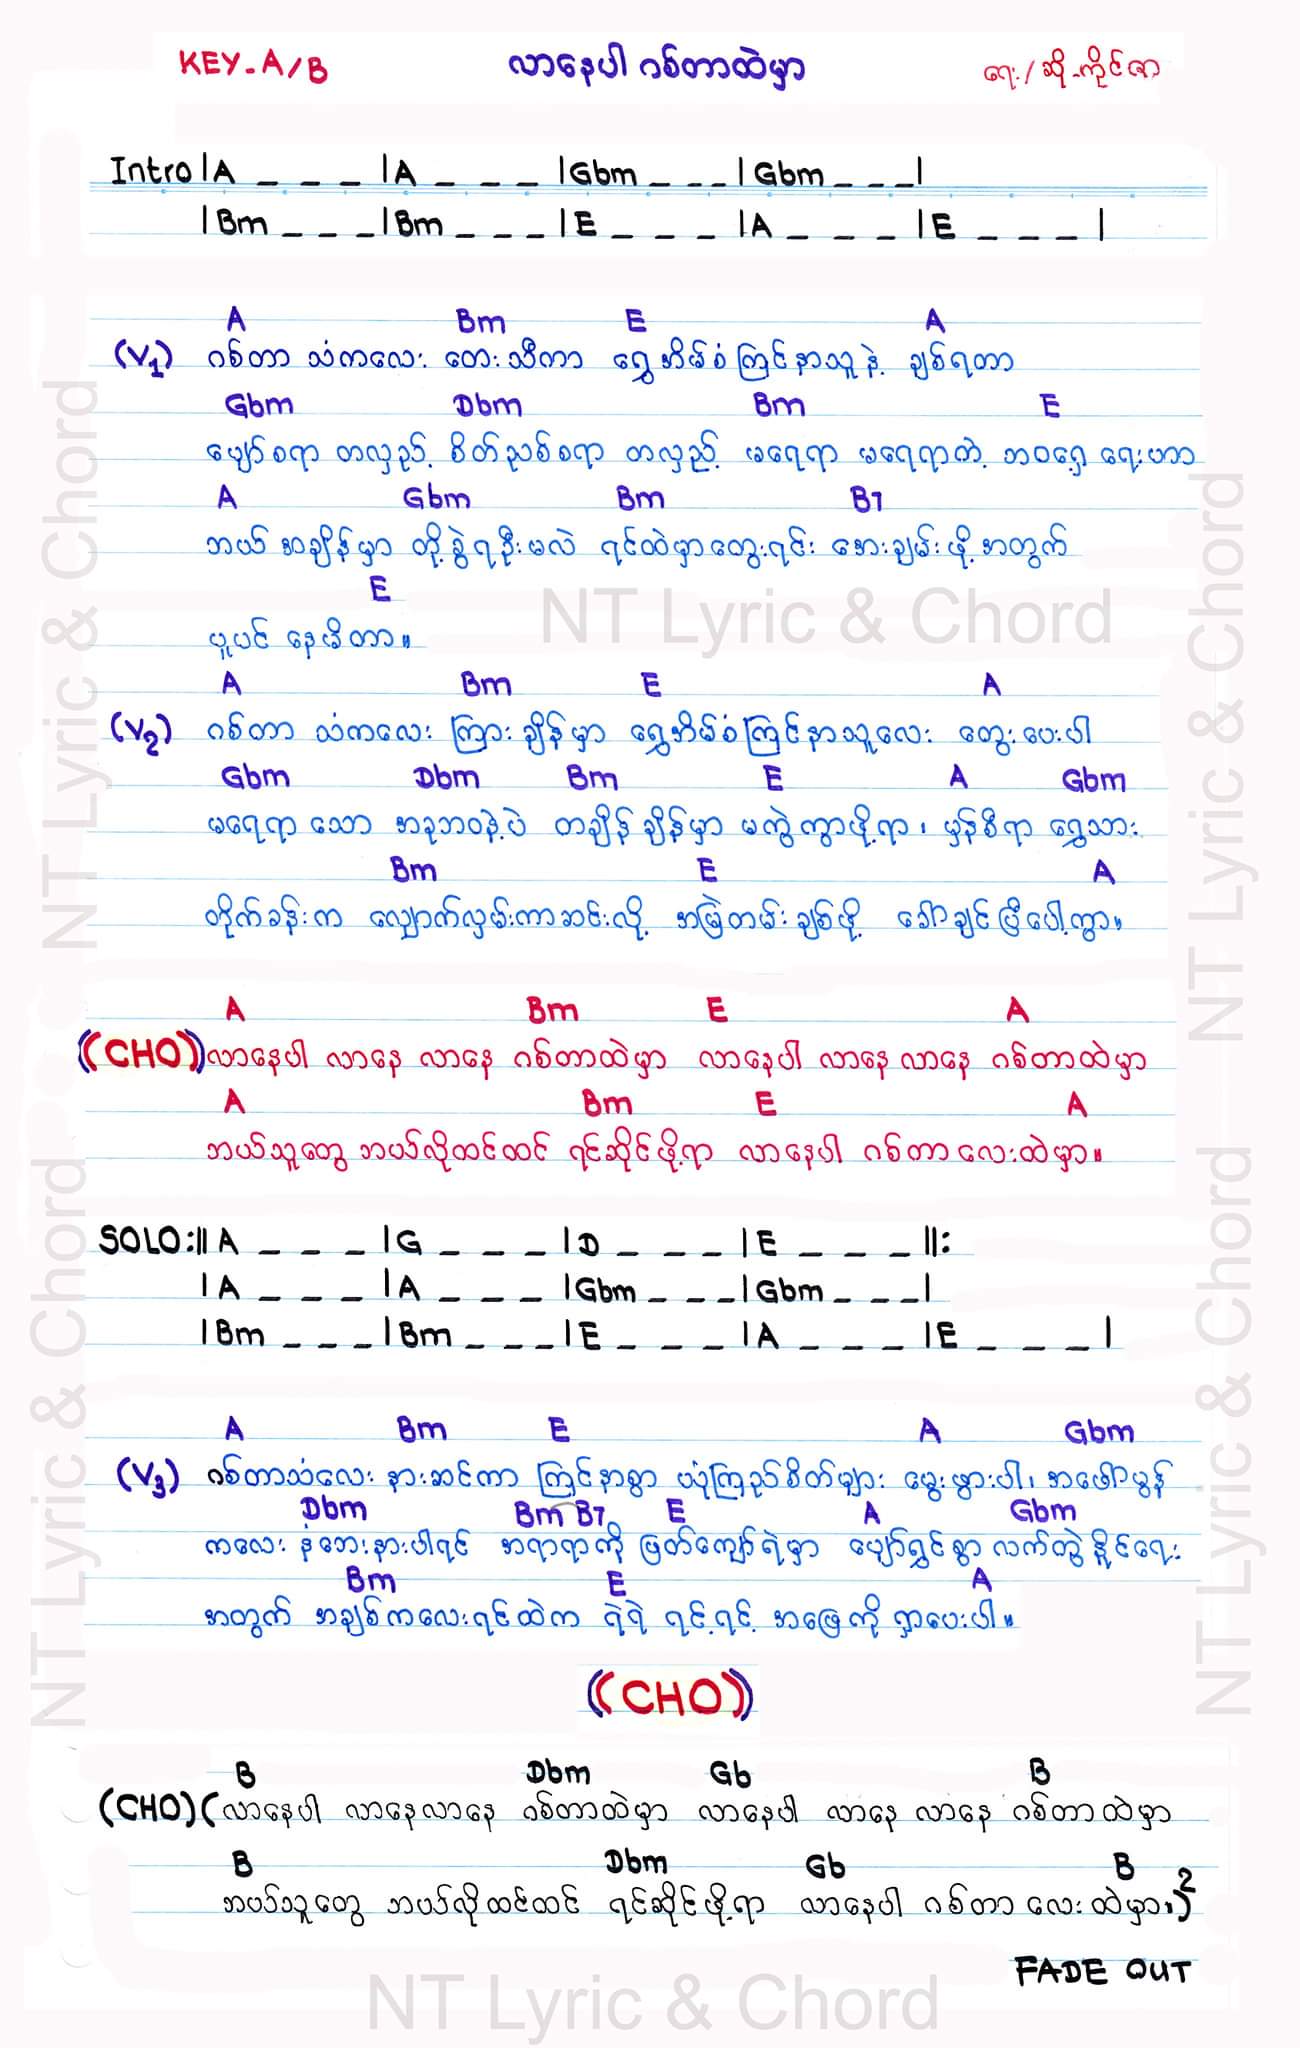 KEY-A/B လာနေပါ ဂစ်တာထဲမှာ ရေး/ဆို-ကိုင်ဇာ
Intro |A _ _ _ |A _ _ _ |Gbm _ _ _ |Gbm _ _ _|
|Bm _ _ _|Bm _ _ _|E _ _ _ |A _ _ _ |E _ _ _ |
A Bm E A
(V1) ဂစ်တာ သံကလေး တေးသီကာ ရွှေအိမ်စံ ကြင်နာသူနဲ့ ချစ်ရတာ
Gbm Dbm Bm E
ပျော်စရာ တလှည့် စိတ်ညစ်စရာ တလှည့် မရေရာ မရေရာတဲ့ ဘဝရှေ့ရေးဟာ
A Gbm Bm B7
ဘယ် အချိန်မှာ တို့ခွဲရဦးမလဲ ရင်ထဲမှာတွေးရင်း အေးချမ်းဖို့ အတွက်
E
ပူပင် နေမိတာ။
A Bm E A
(V2) ဂစ်တာ သံကလေး ကြားချိန်မှာ ရွှေအိမ်စံကြင်နာသူလေး တွေးပေးပါ
Gbm Dbm Bm E A Gbm
မရေရာ သော အခုဘဝနဲ့ပဲ တချိန်ချိန်မှာ မကွဲကွာဖို့ရာ၊ မှန်စီရာ ရွှေသား
Bm E A
တိုက်ခန်းက လျှောက်လှမ်းကာဆင်းလို့ အမြဲတမ်းချစ်ဖို့ ခေါ်ချင်ပြီပေါ့ကွာ။
A Bm E A
(CHO) လာနေပါ လာနေ လာနေ ဂစ်တာထဲမှာ လာနေပါ လာနေ လာနေ ဂစ်တာထဲမှာ
A Bm E A
ဘယ်သူတွေ ဘယ်လိုထင်ထင် ရင်ဆိုင်ဖို့ရာ လာနေပါ ဂစ်တာလေးထဲမှာ။
SOLO:|| A _ _ _ |G _ _ _ |D _ _ _ |E _ _ _||:
|A _ _ _ |A _ _ _ |Gbm _ _ _|Gbm _ _ _|
|Bm _ _ _|Bm _ _ _|E _ _ _ |A _ _ _ |E _ _ _ |
A Bm E A Gbm
(V3) ဂစ်တာသံလေး နားဆင်ကာ ကြင်နာစွာ ယုံကြည်စိတ်များ မွေးဖွားပါ၊ အဖော်မွန်
Dbm Bm B7 E A Gbm
ကလေး နံဘေးနားပါရင် အရာရာကို ဖြတ်ကျော်ရဲမှာ ပျော်ရွှင်စွာ လက်တွဲနိူင်ရေး
Bm E A
အတွက် အချစ်ကလေးရင်ထဲက ရဲရဲ ရင့်ရင့် အဖြေကို ရှာပေးပါ။
(CHO)
B Dbm Gb B
(CHO)(လာနေပါ လာနေလာနေ ဂစ်တာထဲမှာ လာနေပါ လာနေ လာနေ ဂစ်တာထဲမှာ
B Dbm Gb B
ဘယ်သူတွေ ဘယ်လိုထင်ထင် ရင်ဆိုင်ဖို့ရာ လာနေပါ ဂစ်တာ လေးထဲမှာ။)2
FADE OUT
NT Lyric & Chord
NT Lyric & Chord
NT Lyric & Chord
NT Lyric & Chord
NT Lyric & Chord
NT Lyric & Chord